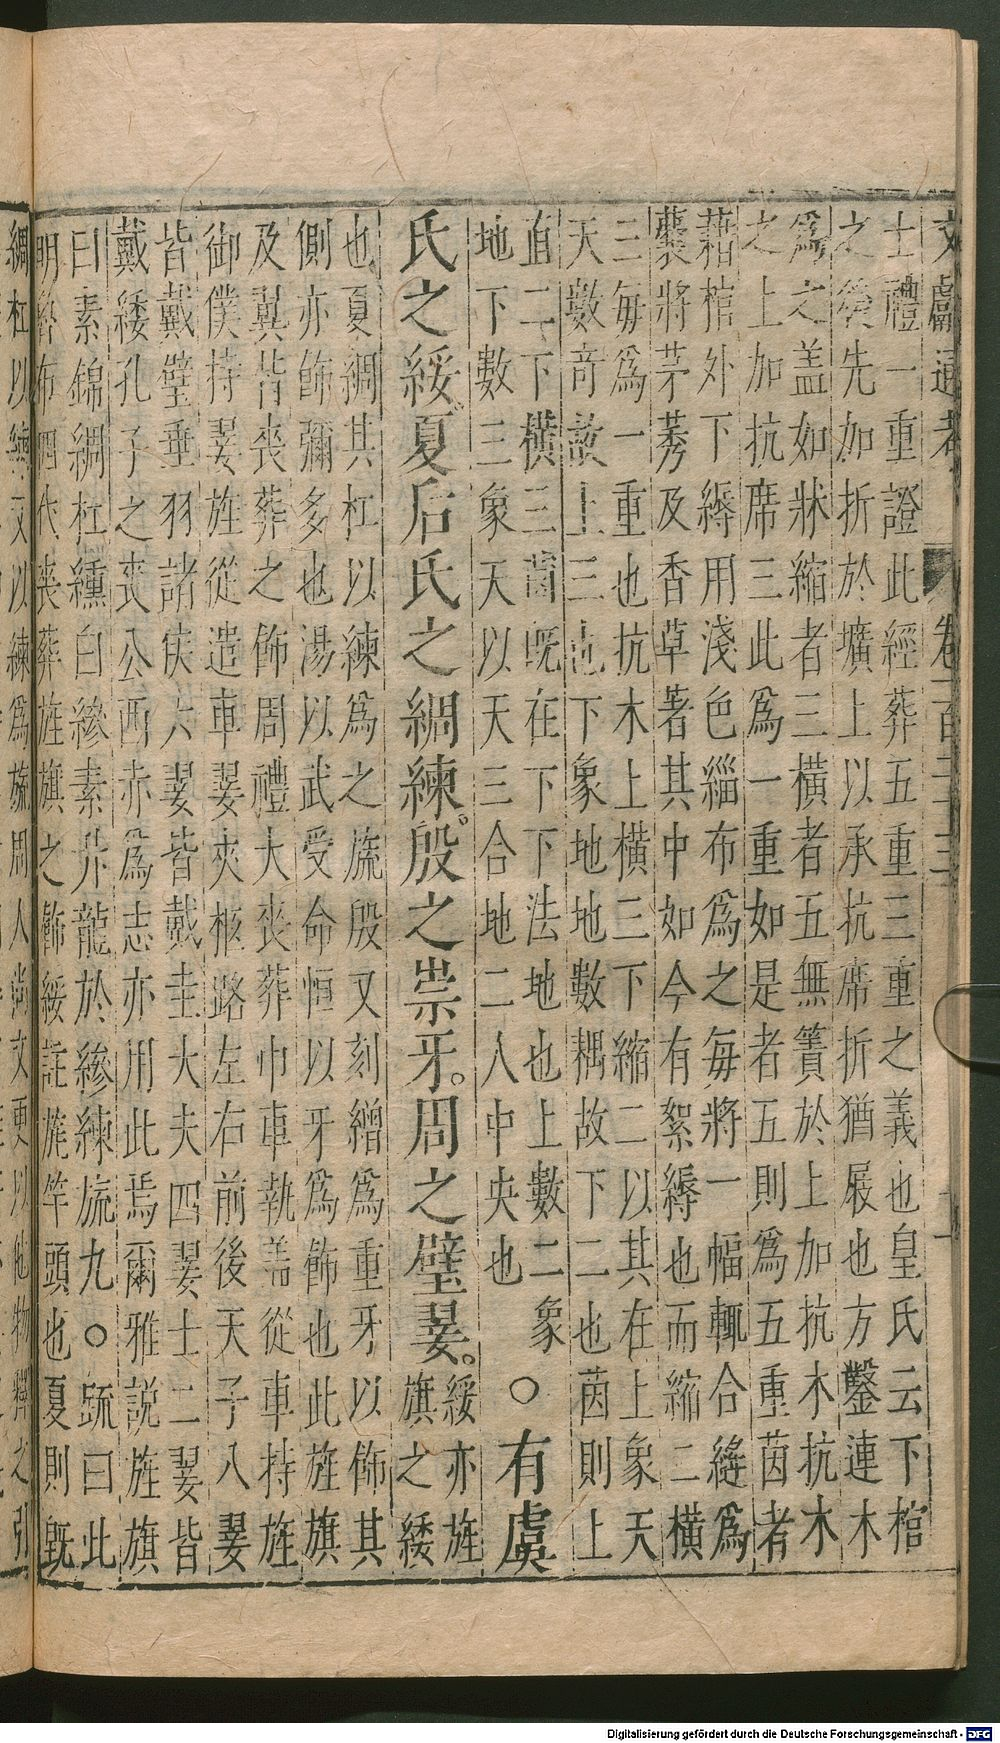 文獻通考 卷一百二十三
士禮一重證此經葬五重三重之義也皇氏云下棺
之後先加折於壙上以承抗席折猶庪也方鑿連木
為之盖如牀縮者三橫者五無簀於上加抗木抗木
之上加抗席三此為一重如是者五則為五重茵者
藉棺外下縟用淺色緇布為之每將一幅輒合縫為
囊將茅莠及香草著其中如今有絮縟也而縮二橫
三每為一重也抗木上橫三下縮二以其在上象天
天數奇故上三也下象地地數耦故下二也茵則上
直二下橫三茵既在下下法地也上數二象
地下數三象天以天三合地二人中央也
○有虞
氏之綏夏后氏之綢練。殷之崇牙。周之璧翣。
綏亦旌
旗之緌
也夏綢其杠以練為之旒殷又刻繒為重牙以飾其
側亦飾彌多也湯以武受命恒以牙為飾也此旌旗
及翼皆喪葬之飾周禮大喪葬巾車執盖從車持旌
御僕持翣旌從遣車翣夾柩路左右前後天子八翣
皆戴璧垂羽諸侯六翣皆戴圭大夫四翣士二翣皆
戴緌孔子之喪公西赤為志亦用此焉爾雅説旌旗
曰素錦綢杠纁白縿素升龍於縿練旒九○疏曰此
明魯布四代喪葬旌旗之飾綏註旄竿頭也夏則既
綢杠以練又以練為旒周人尚文更以他物飾之引
Digitalisierung gefördert durch die Deutsche Forschungsgemeinschaft - DFG